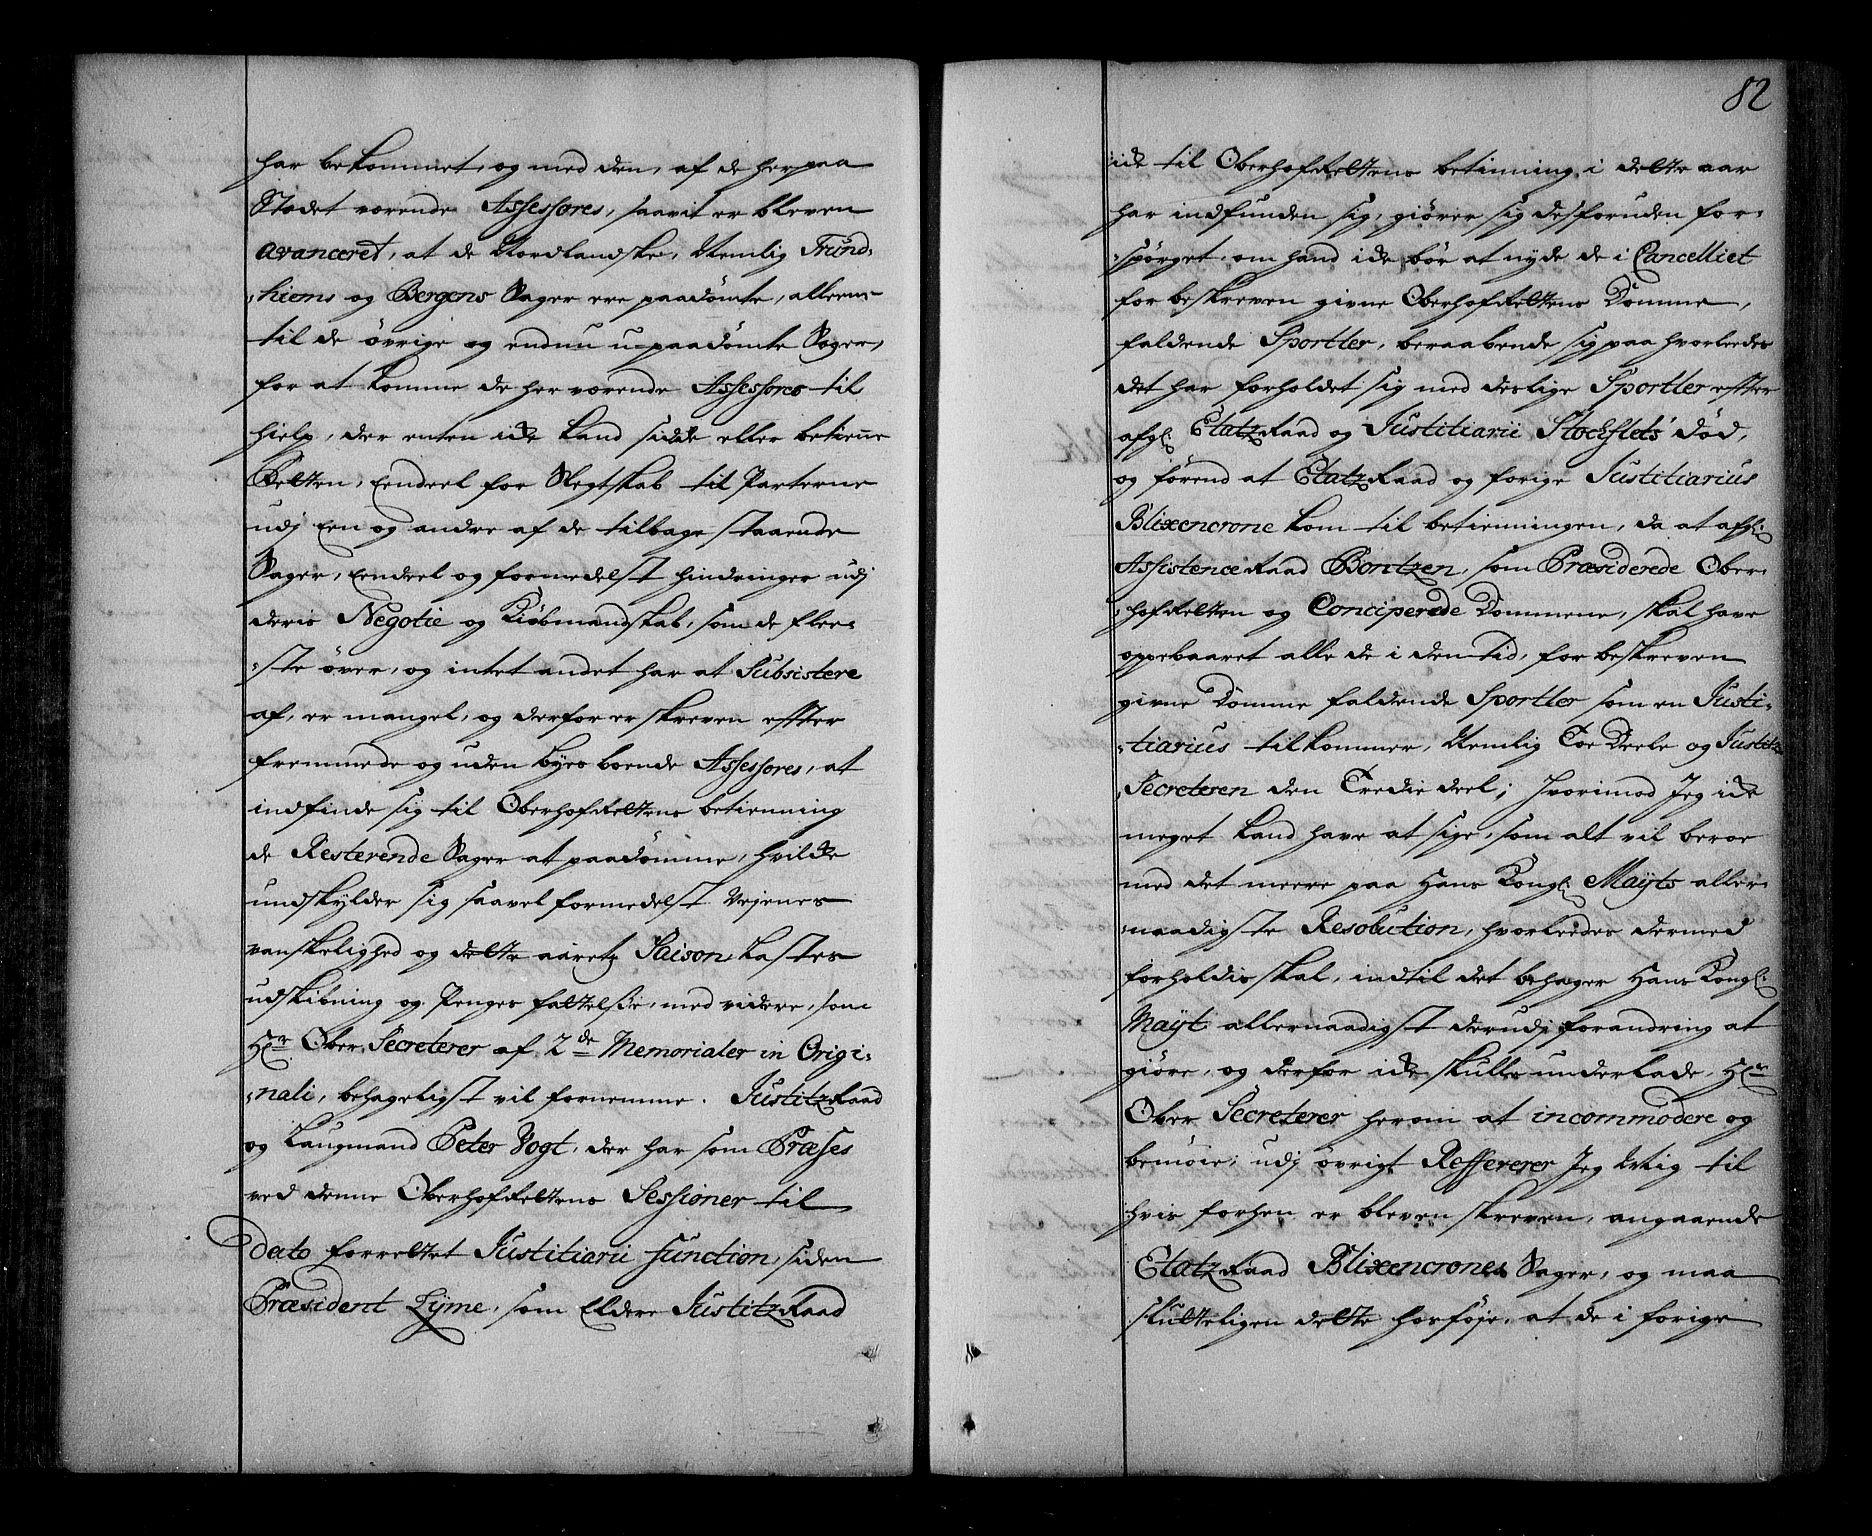 har bekommet, og med den, af de her paa
Stædet værende Assessores, saavit er bleven
avanceret, at de Nordlandske, Nemlig Trund-
hiems og Bergens Sager ere paadømte, alleene
til de øvrige og endnu u-paadømte Sager,
for at komme de her værende Assessores til
hielp, der enten icke kand sidde eller betiene
Retten, Eendeel for Slegtskab til Parterne
udj Een og andre af de tilbage staaende
Sager, Eendeel og formedelst hindringer udj
deris Negotie og Kiøbmandskab, som de flee-
ste øver, og intet andet har at Subsistere
af, er mangel, og derfor er skreven effter
fremmede og uden byes boende Assessores, at
indfinde sig til OberhofRettens betienning
de Resterende Sager at paadømme, hvilcke
undskylder sig saavel formedelst Vejenes
vanskelighed og dette aaretz Saison, Lastes
udskibning og Penges fattelse, med videre, som
Hr. Ober Secreterer af 2de Memorialer in Origi-
nali, behageligst vil fornemme. JustitzRaad
og Laugmand Peter Vogt, der har som Præses
ved denne OberhofRettens Sessioner til
Dato forrettet Justitiarii function, siden
Præsident Lyme, som Eldere JustitzRaad
82
icke til OberhofRettens betienning i dette aar
har indfunden sig, giører sig desforuden for-
spørget, om hand icke bør at nyde de i Cancelliet
for beskreven givne OberhofRettens Domme,
faldende Sportler, beraabende sig paa hvorleedes
det har forholdet sig med deslige Sportler effter
afgl. EtatzRaad og Justitiarii Stochflets død,
og førend at EtatzRaad og forige Justitiarius
Blixencrone kom til betienningen, da at afgl.
AssistenceRaad Bontzen, som Præsiderede Ober-
hofRetten og Conciperede Dommene, skal have
oppebaaret alle de i den tid, for beskreven
givne Domme faldende Sportler som en Justi-
tiarius tilkommer, Nemlig Toe Deele og Justitz
Secreteren den Tredie deel; Hvorimod Jeg icke
meget kand have at sige, som alt vil beroe
med det meere paa Hans Kongl. Mayts aller-
naadigste Resolution, hvorleedes dermed
forholdis skal, indtil det behager Hans Kongl.
Mayt allernaadigst derudj forandring at
giøre, og derfor icke skulle underlade, Hr.
Ober Secreterer herom at incommodere og
bemøie; udj øvrigt Reffererer Jeg Mig til
hvis forhen er bleven skreven, angaaende
EtatzRaad Blixencrones Sager, og maa
skylteligen dette hosføje, at de i forige